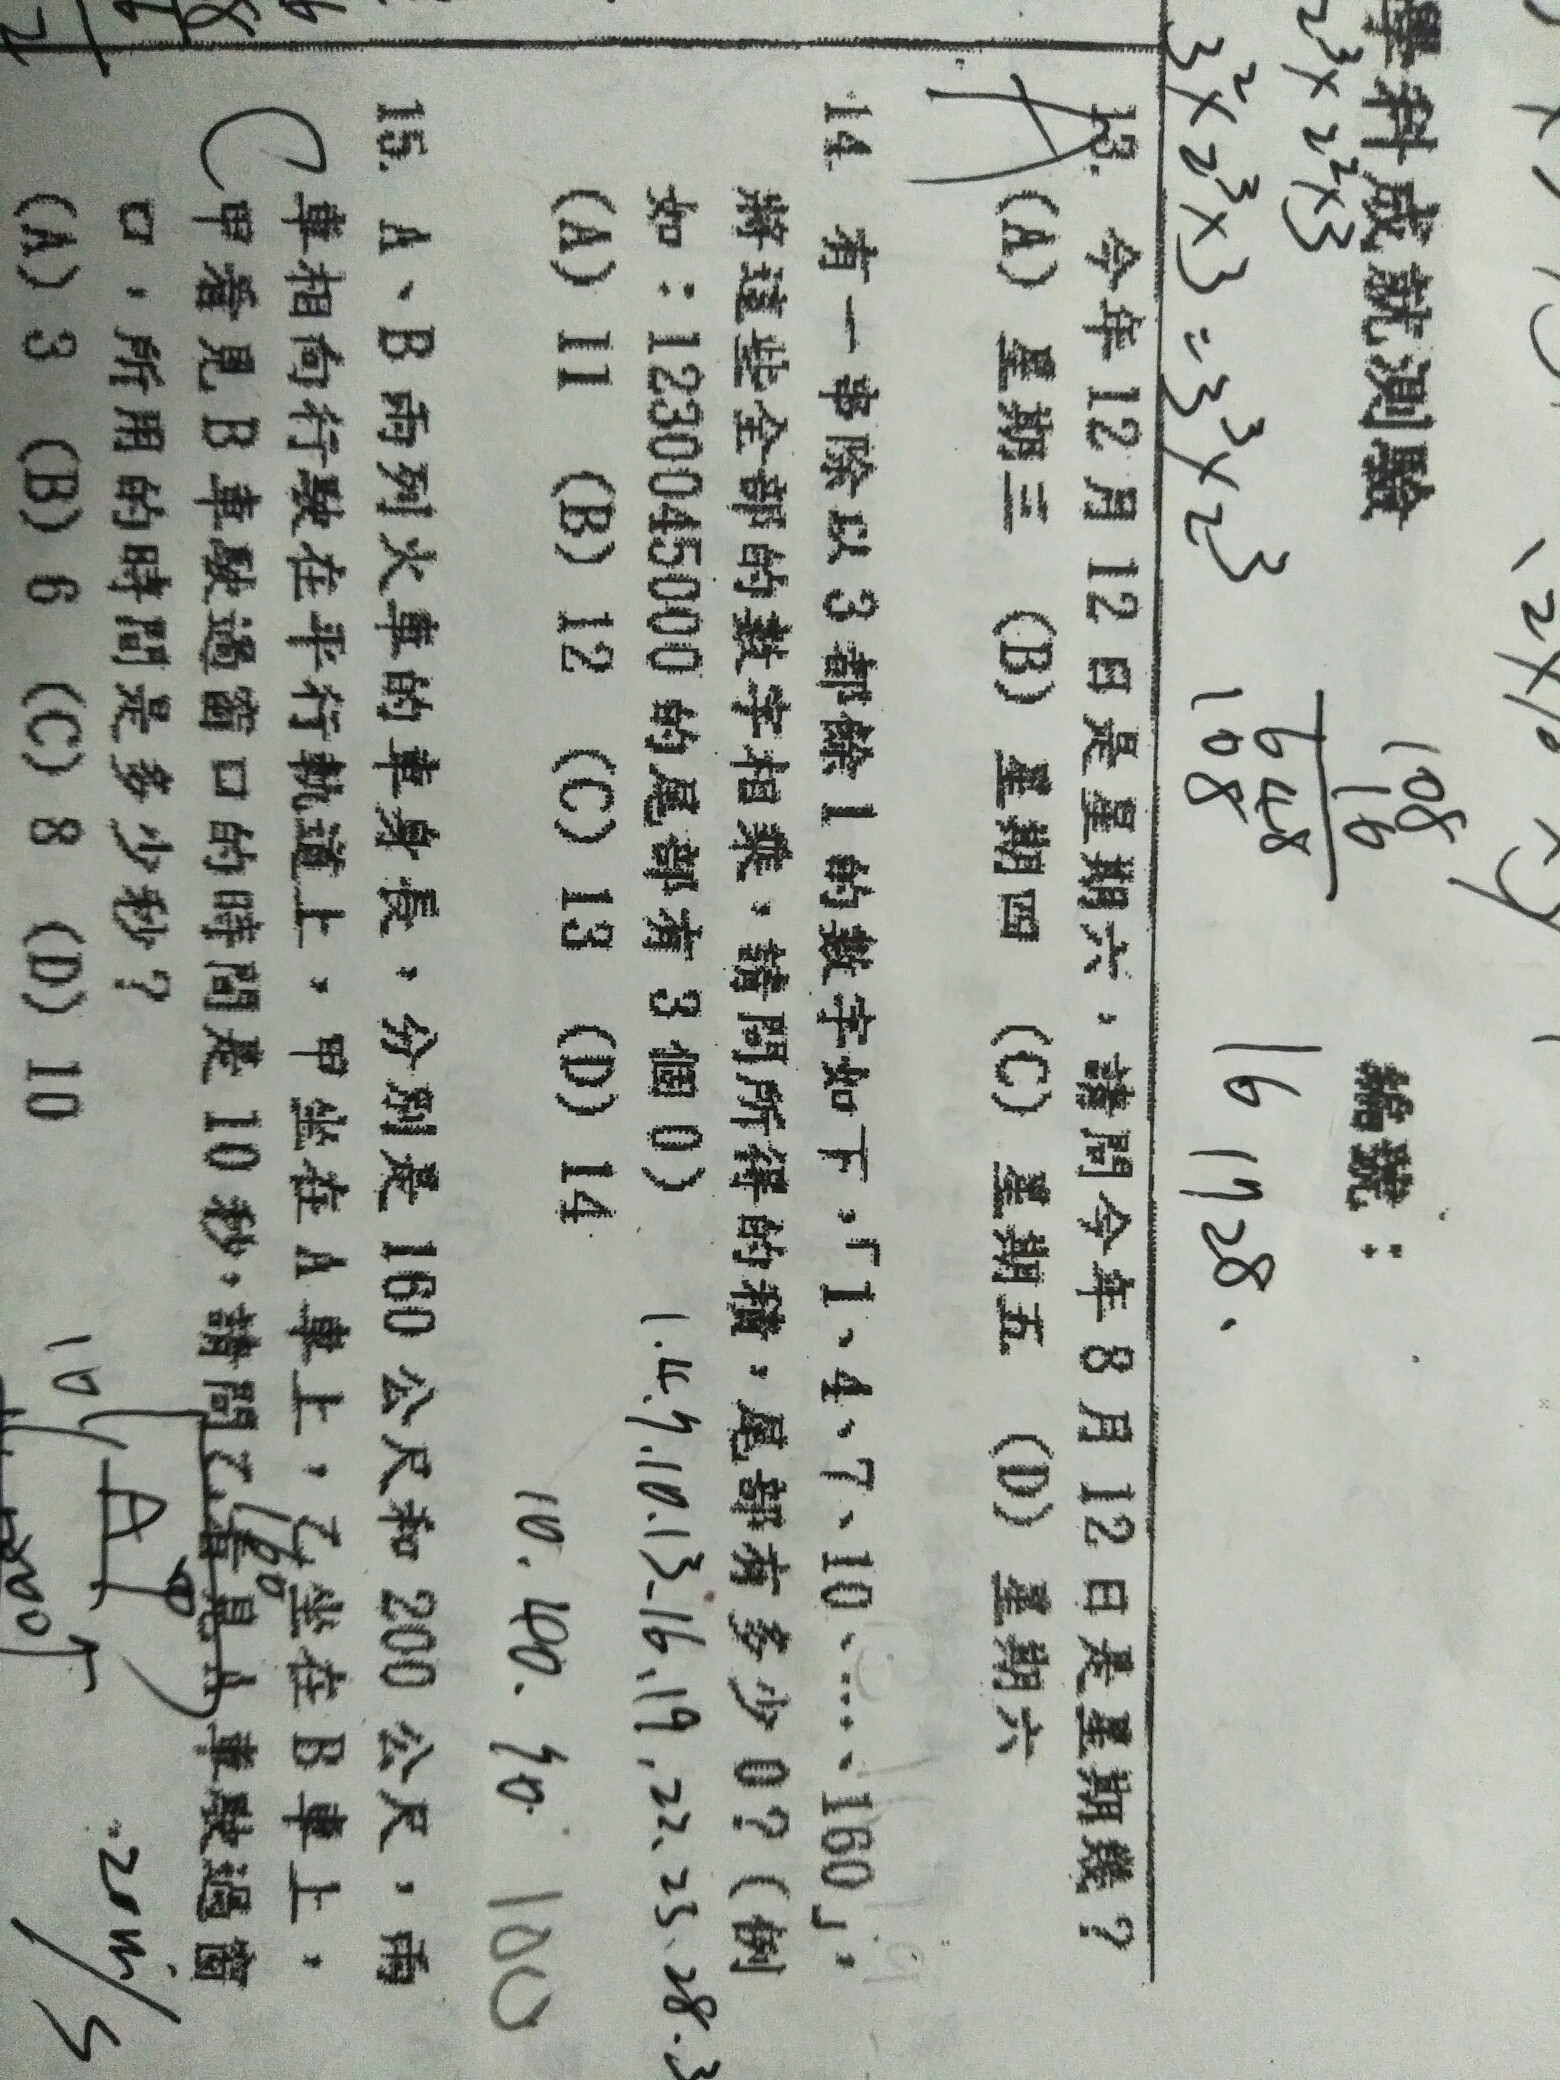 學科成就測驗
編號：
2³×2²×3
3²×2³×3=3³×2³
108
16
648
108
16
1728
13. 今年 12 月 12 日是星期六，請問今年 8 月 12 日是星期幾？
(A) 星期三 (B) 星期四 (C) 星期五 (D) 星期六
14. 有一串除以 3 都餘 1 的數字如下，「1、4、7、10、…、160」，
將這些全部的數字相乘，請問所得的積，尾部有多少 0？（例
如：1230045000 的尾部有 3 個 0）
1.4.7.10.13.16.19.22.25.28.3
(A) 11 (B) 12 (C) 13 (D) 14
10. 40. 70. 100
15. A、B 兩列火車的車身長，分別是 160 公尺和 200 公尺，兩
車相向行駛在平行軌道上，甲坐在 A 車上，乙坐在 B 車上，
甲看見 B 車駛過窗口的時間是 10 秒，請問乙看見 A 車駛過窗
口，所用的時間是多少秒？
(A) 3 (B) 6 (C) 8 (D) 10
C
160
A
甲
20m/s